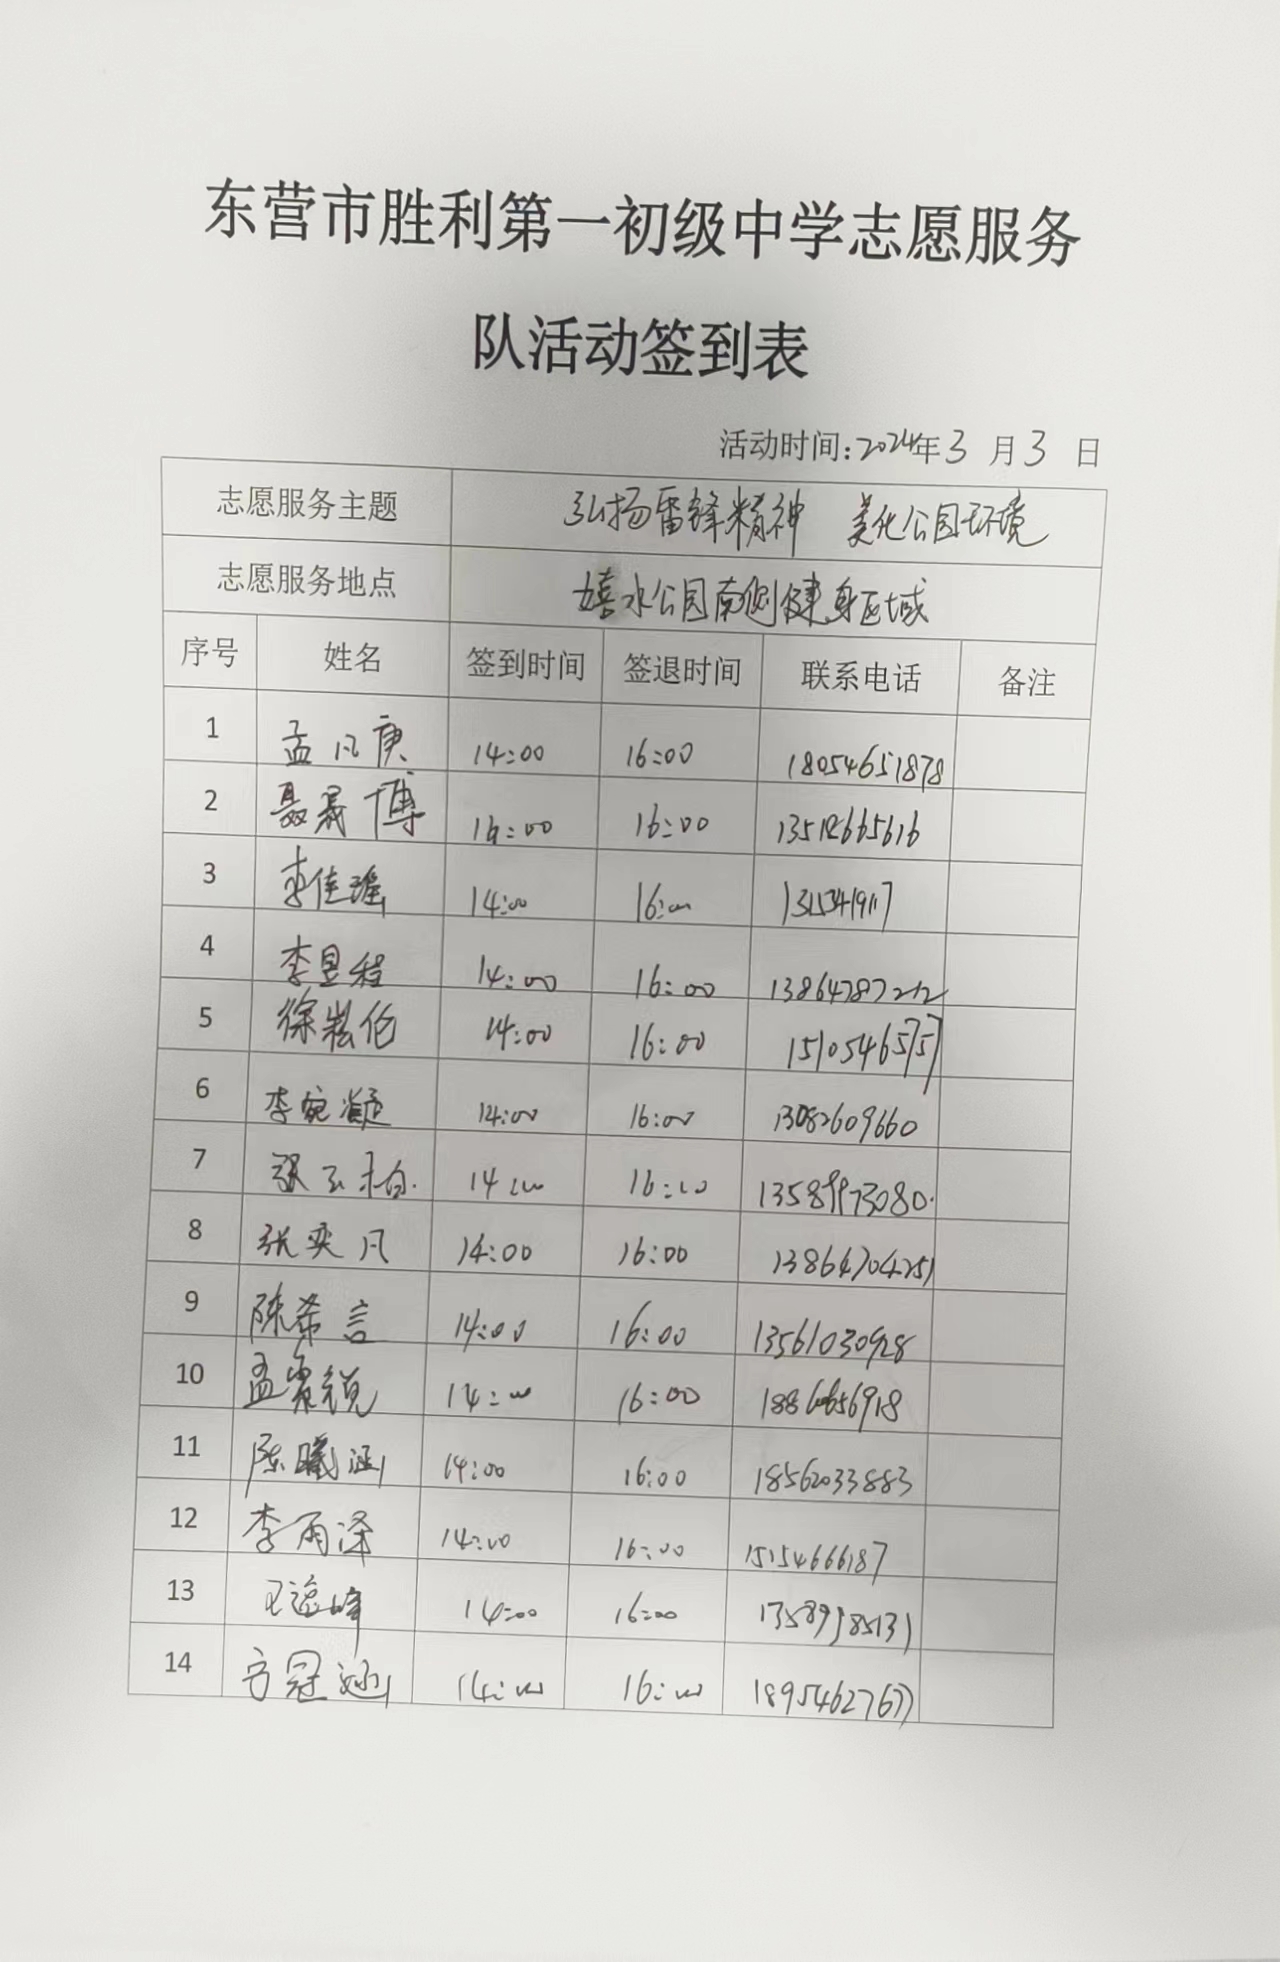 东营市胜利第一初级中学志愿服务
队活动签到表
活动时间:2024年3月3日
志愿服务主题 弘扬雷锋精神 美化公园环境
志愿服务地点 嬉水公园南侧健身区域
序号 姓名 签到时间 签退时间 联系电话 备注
1 孟凡庚 14:00 16:00 18054651878
2 聂晟博 14:00 16:00
3 李佳瑶 14:00 16:00
4 李昱程 14:00 16:00 13864787212
5 徐崧伦 14:00 16:00 15105465757
6 李宛凝 14:00 16:00 13082609660
7 张玉柏 14:00 16:00 13589973080
8 张奕凡 14:00 16:00 13864704251
9 陈希言 14:00 16:00 13561030928
10 孟宪锐 14:00 16:00
11 陈曦涵 14:00 16:00 18562033883
12 李雨泽 14:00 16:00 15154666187
13 王逸峰 14:00 16:00 13589985131
14 方冠涵 14:00 16:00 18954627677